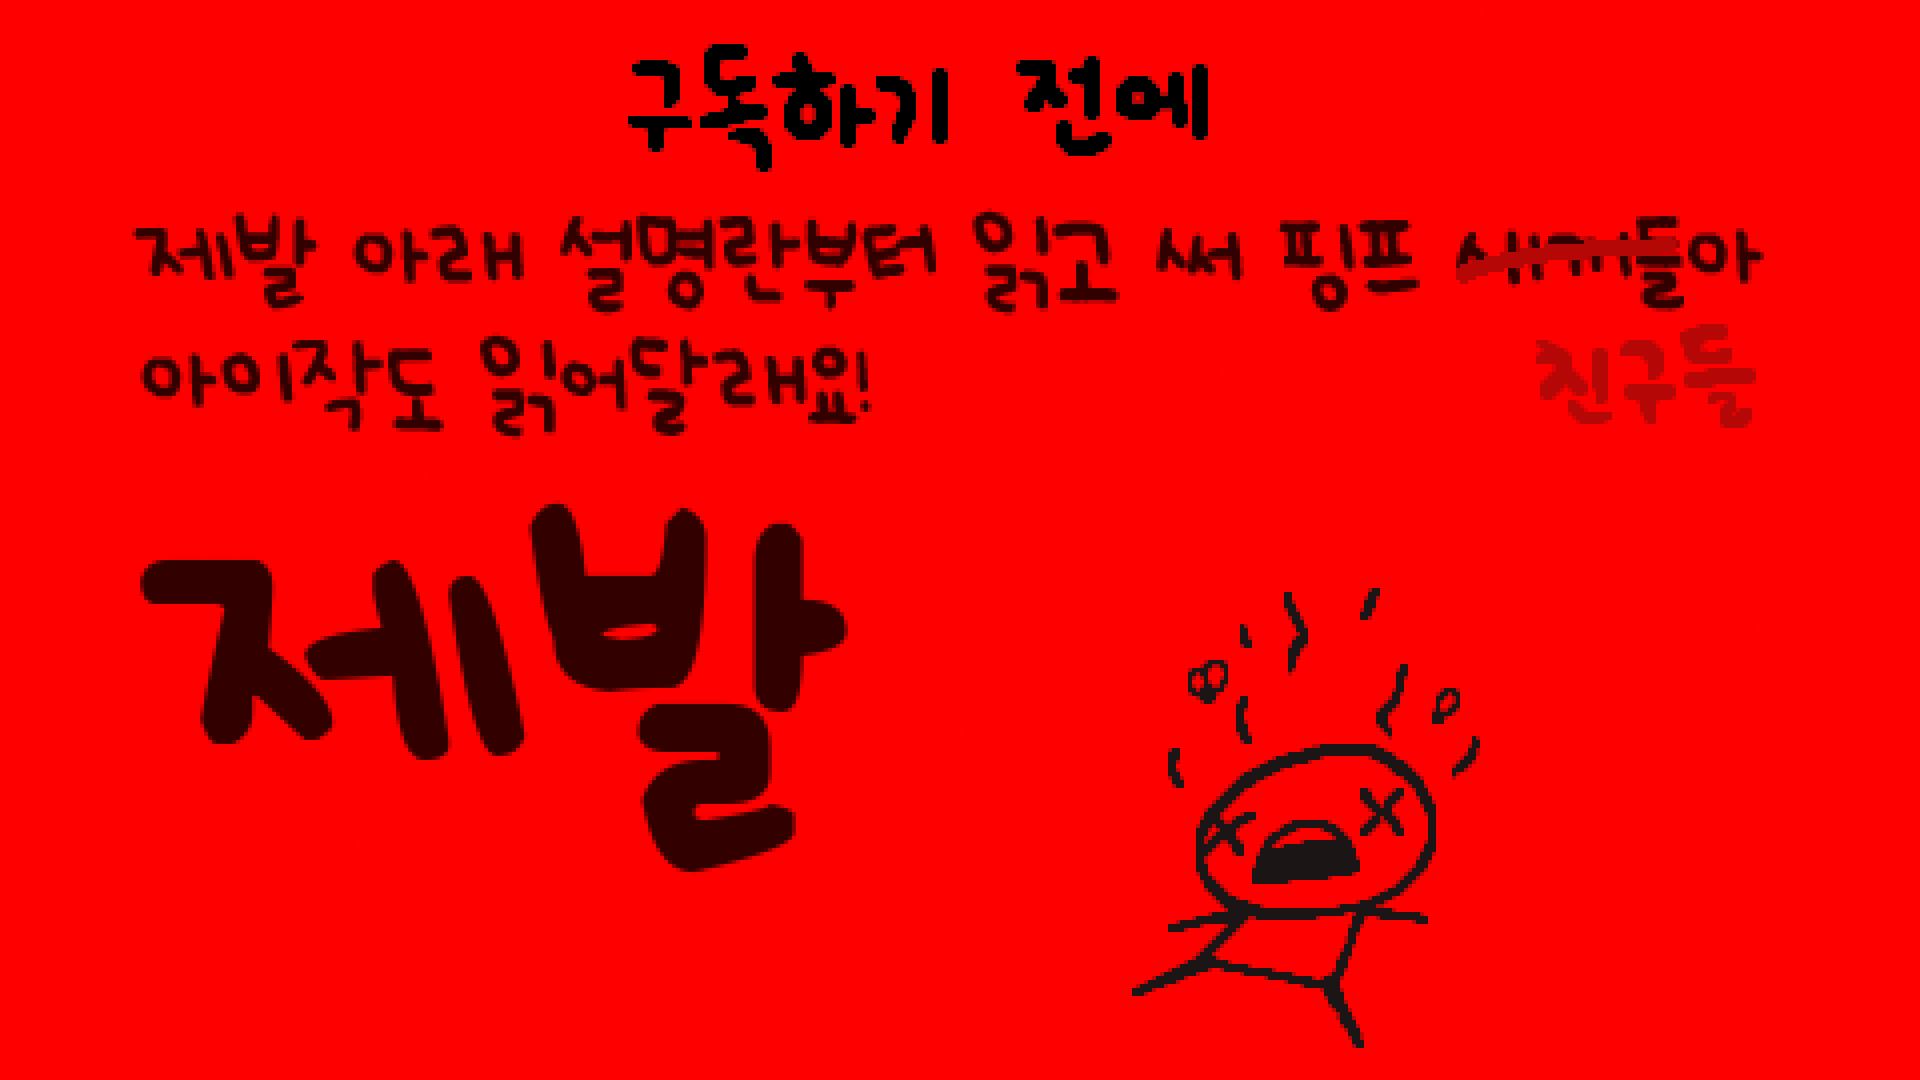 구독하기 전에
제발 아래 설명란부터 읽고 써 핑프 새끼들아
친구들
아이작도 읽어달래요!
제발